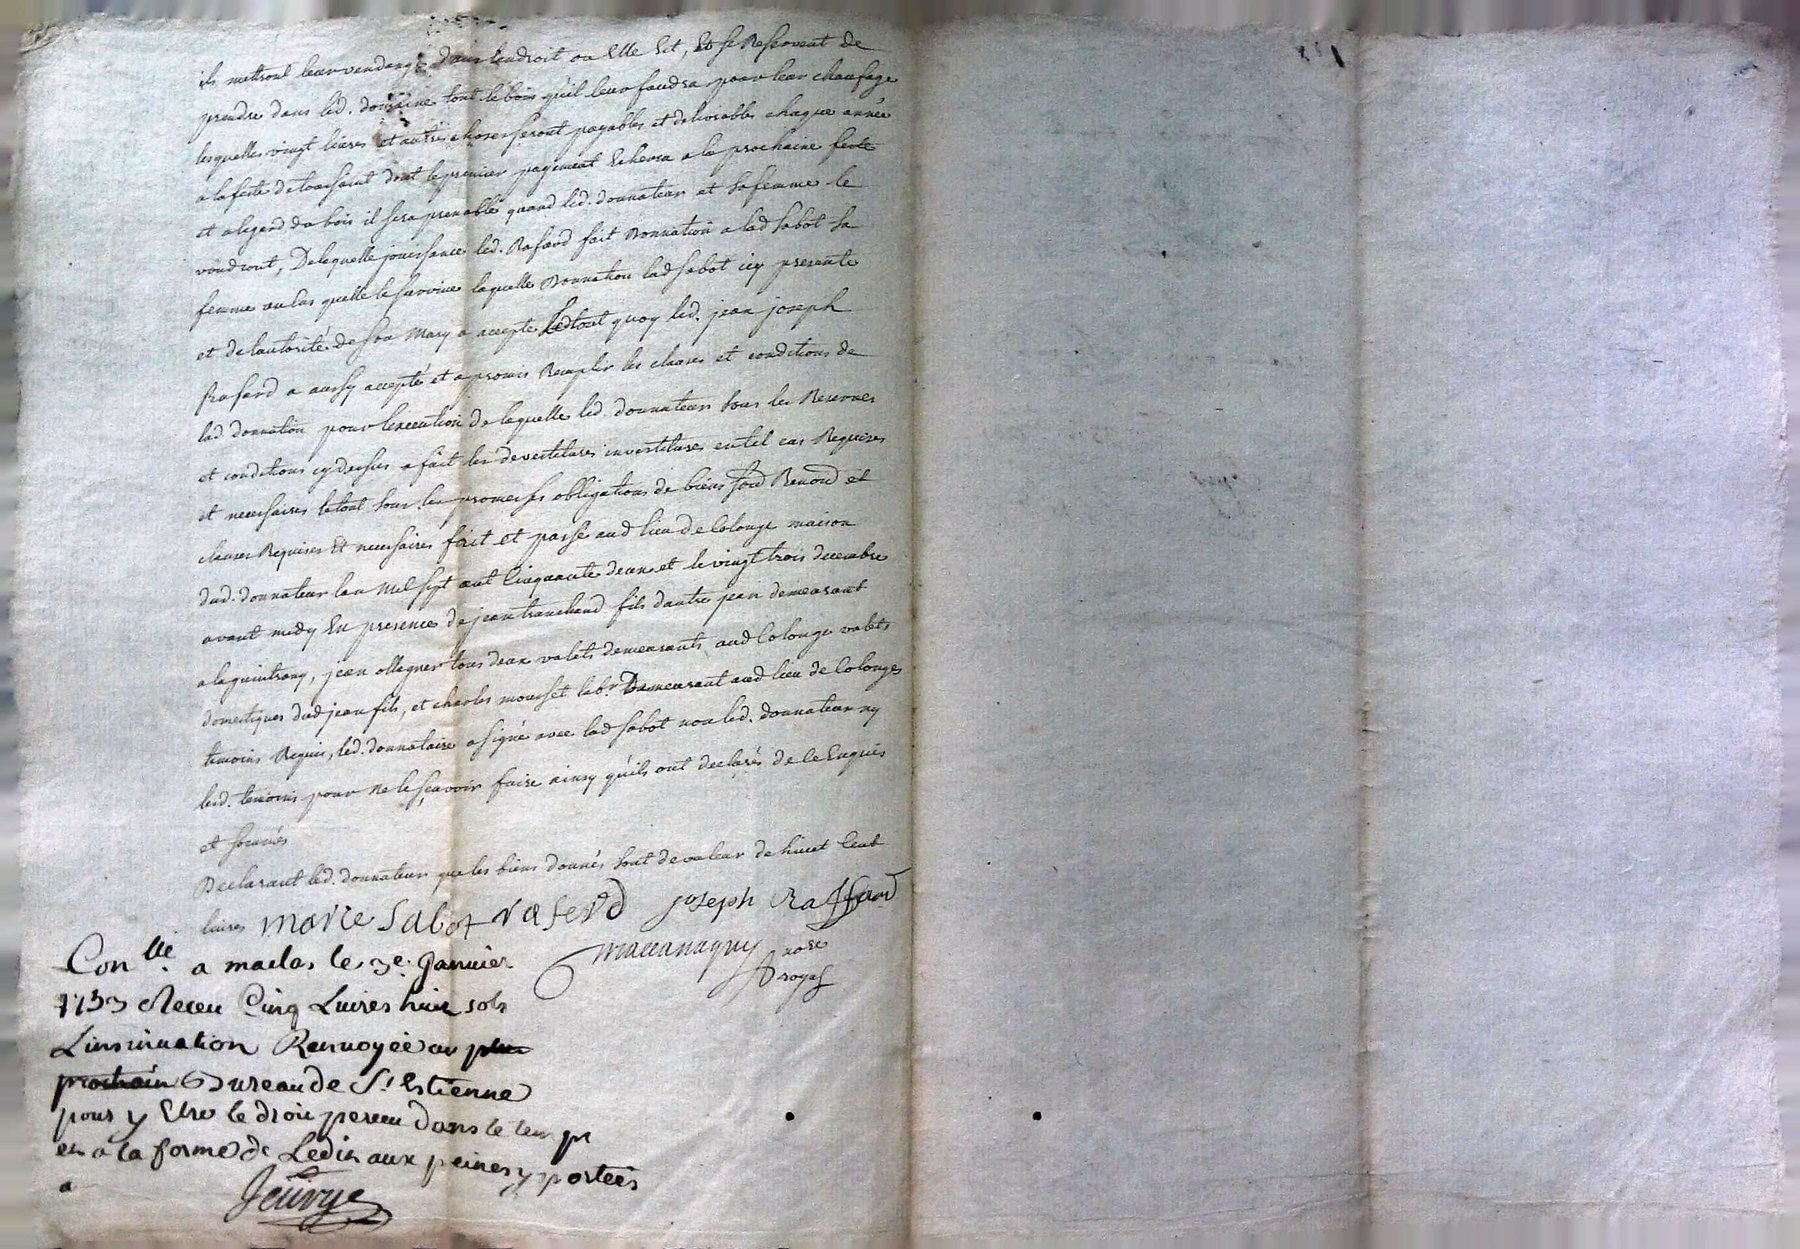 ils mettront leur vendange dans lendroit ou Elle Est, Et se Reservent de
prendre dans led. domaine tout le bois quil leur faudra pour leur chaufage
lesquelles vingt livres et autres choses seront payables et delivrables chaque année
a la feste de toussaint dont le premier payement Echerra a la prochaine feste
et alegard du bois il sera prenable quand led. donnateur et sa femme le
voudront, De laquelle jouissance led. Rafard fait Donnation a lad Sabot sa
femme au cas quelle le survive laquelle Donnation lad Sabot icy presente
et de lautorité de son Mary a accepté tout quoy led. jean joseph
Rafard a aussy accepté et a promis Remplir les clauses et conditions de
lad donnation pour lexecution de laquelle led. donnateur sous les Reserves
et conditions cy dessus a fait les devestitures investitures en tel cas Requises
et necessaires le tout sous les promesses obligations de biens Renond et
clauses Requises Et necessaires fait et passé aud lieu de Colonge maison
dud. donnateur lan Mil sept cent Cinquante deux et le vingt trois decembre
avant midy En presence de jean tranchand fils dautre jean demeurant
a , jean ollagner tous deux valets demeurants aud Colonge valets
domestiques dud jean fils, et charles mousset labr Demeurant aud lieu de Colonges
temoins Requis, led. donnataire a signé avec lad Sabot non led. donnateur ny
lesd. temoins pour ne le sçavoir faire ainsy quils ont declarés de ce Enquis
et sommés
Declarant led. donnateur que les biens donnés sont de valeur de huict Cent
livres marie Sabot raferd joseph Raffard
nore
royal
Conlle. a maclas le 3e. Janvier
1753 Receu Cinq Livres huit sols
Linsinuation Renvoyée au plus
prochain Bureau de St Estienne
pour y Etre le droit perceu dans le tems
et a la forme de Ledit aux peines y portées